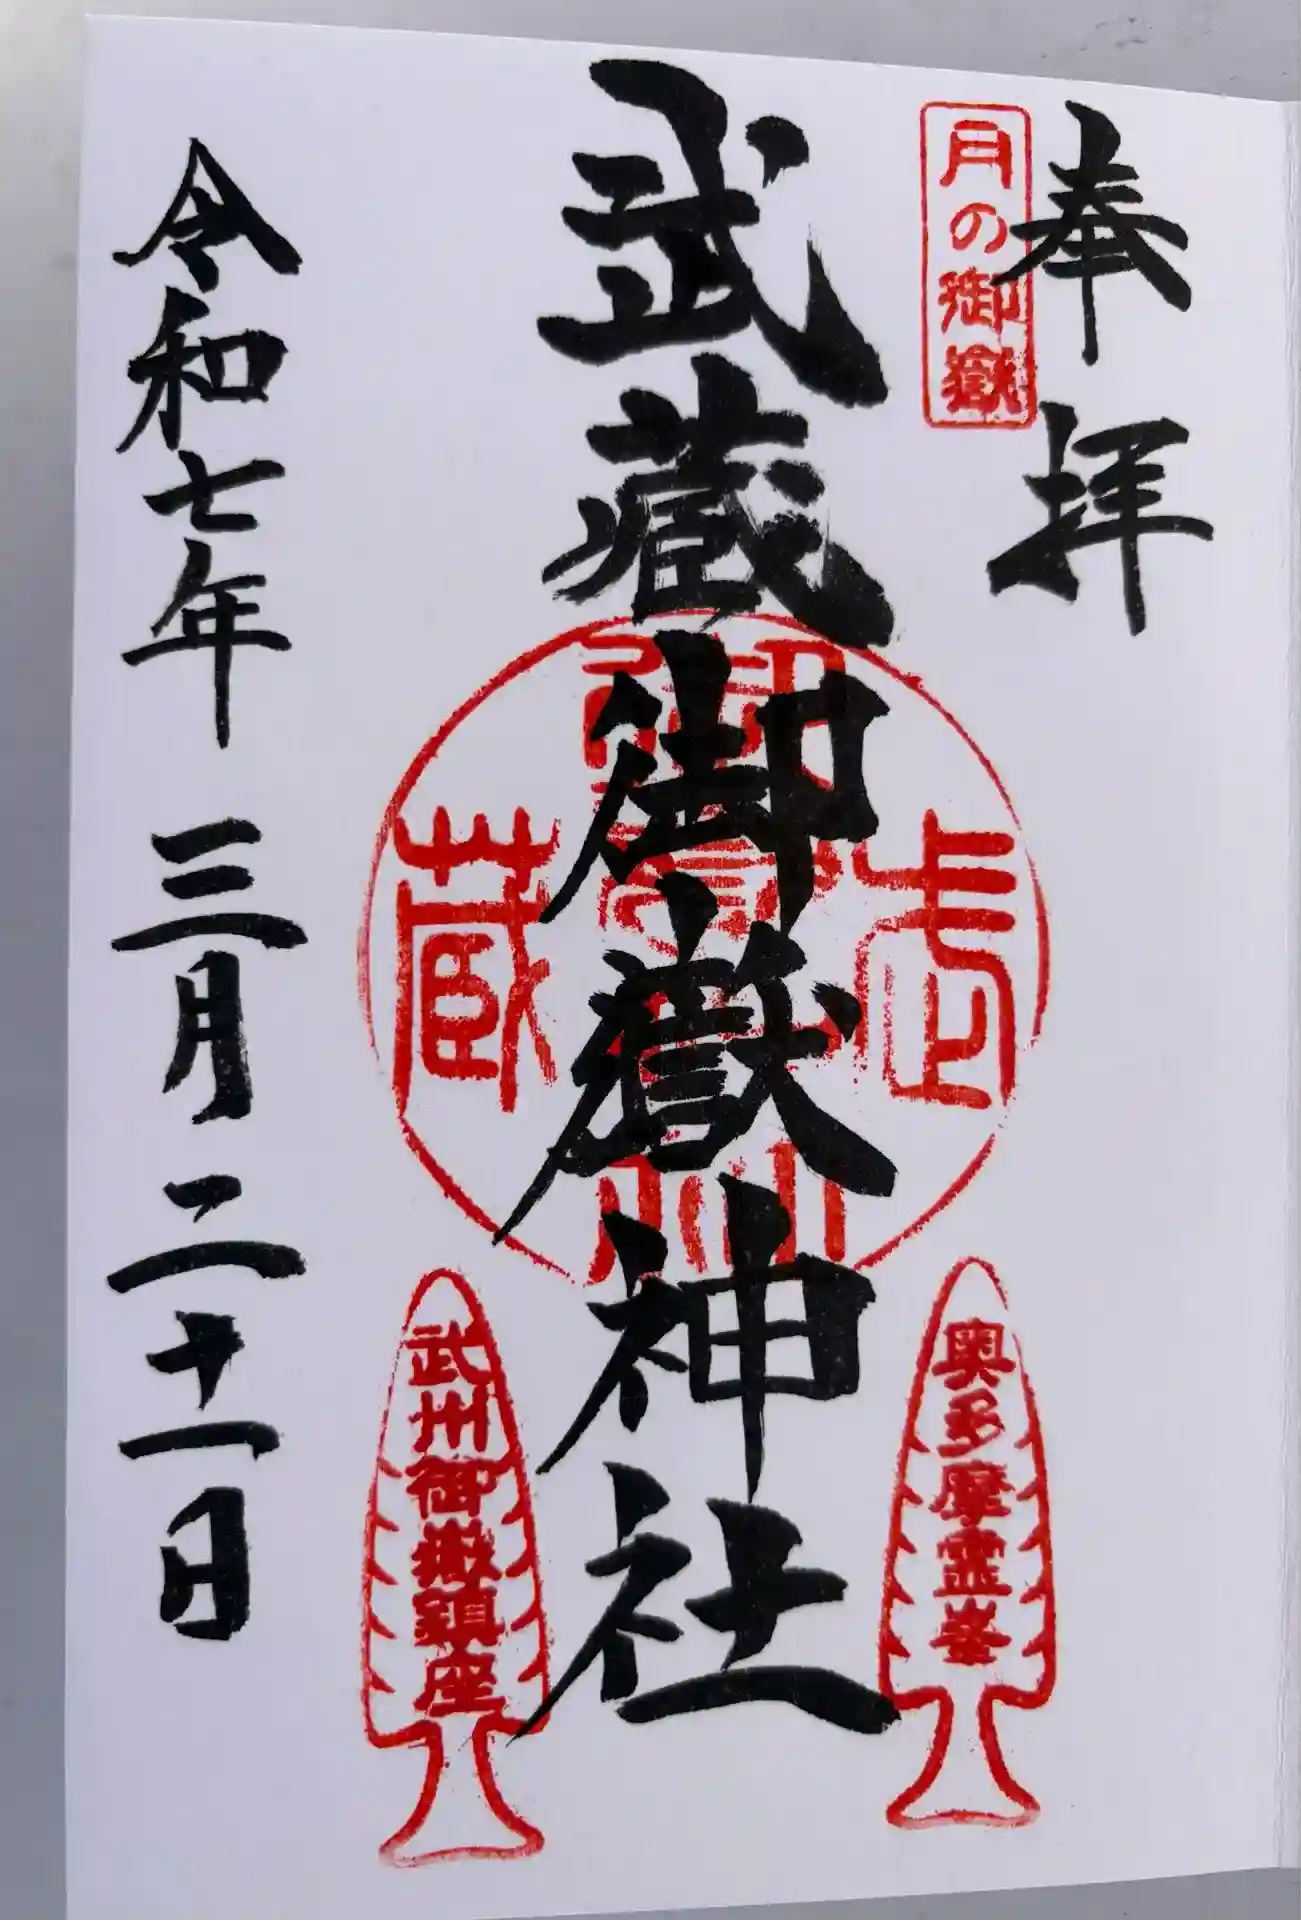 奉拝
月の御嶽
武蔵御嶽神社
武蔵
奥多摩霊峯
武州御嶽鎮座
令和七年 三月二十一日